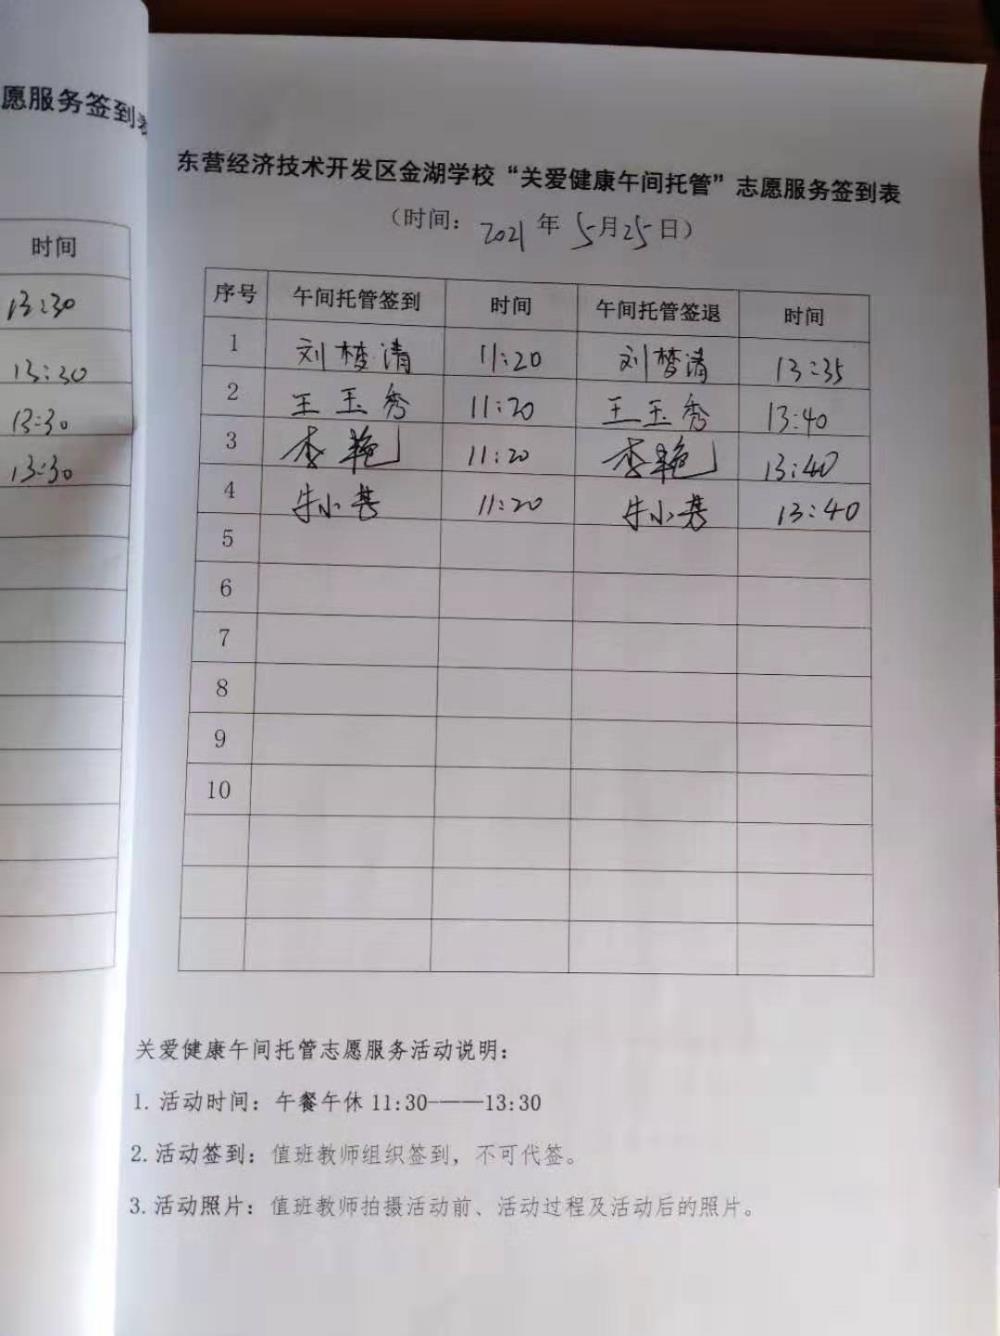 愿服务签到表
时间
13:30
13:30
13:30
13:30
东营经济技术开发区金湖学校“关爱健康午间托管”志愿服务签到表
（时间：2021年5月25日）
序号 午间托管签到 时间 午间托管签退 时间
1 刘梦清 11:20 刘梦清 13:35
2 王玉秀 11:20 王玉秀 13:40
3 李艳 11:20 李艳 13:40
4 牛小 11:20 牛小 13:40
5
6
7
8
9
10
关爱健康午间托管志愿服务活动说明：
1. 活动时间：午餐午休 11:30——13:30
2. 活动签到：值班教师组织签到，不可代签。
3. 活动照片：值班教师拍摄活动前、活动过程及活动后的照片。